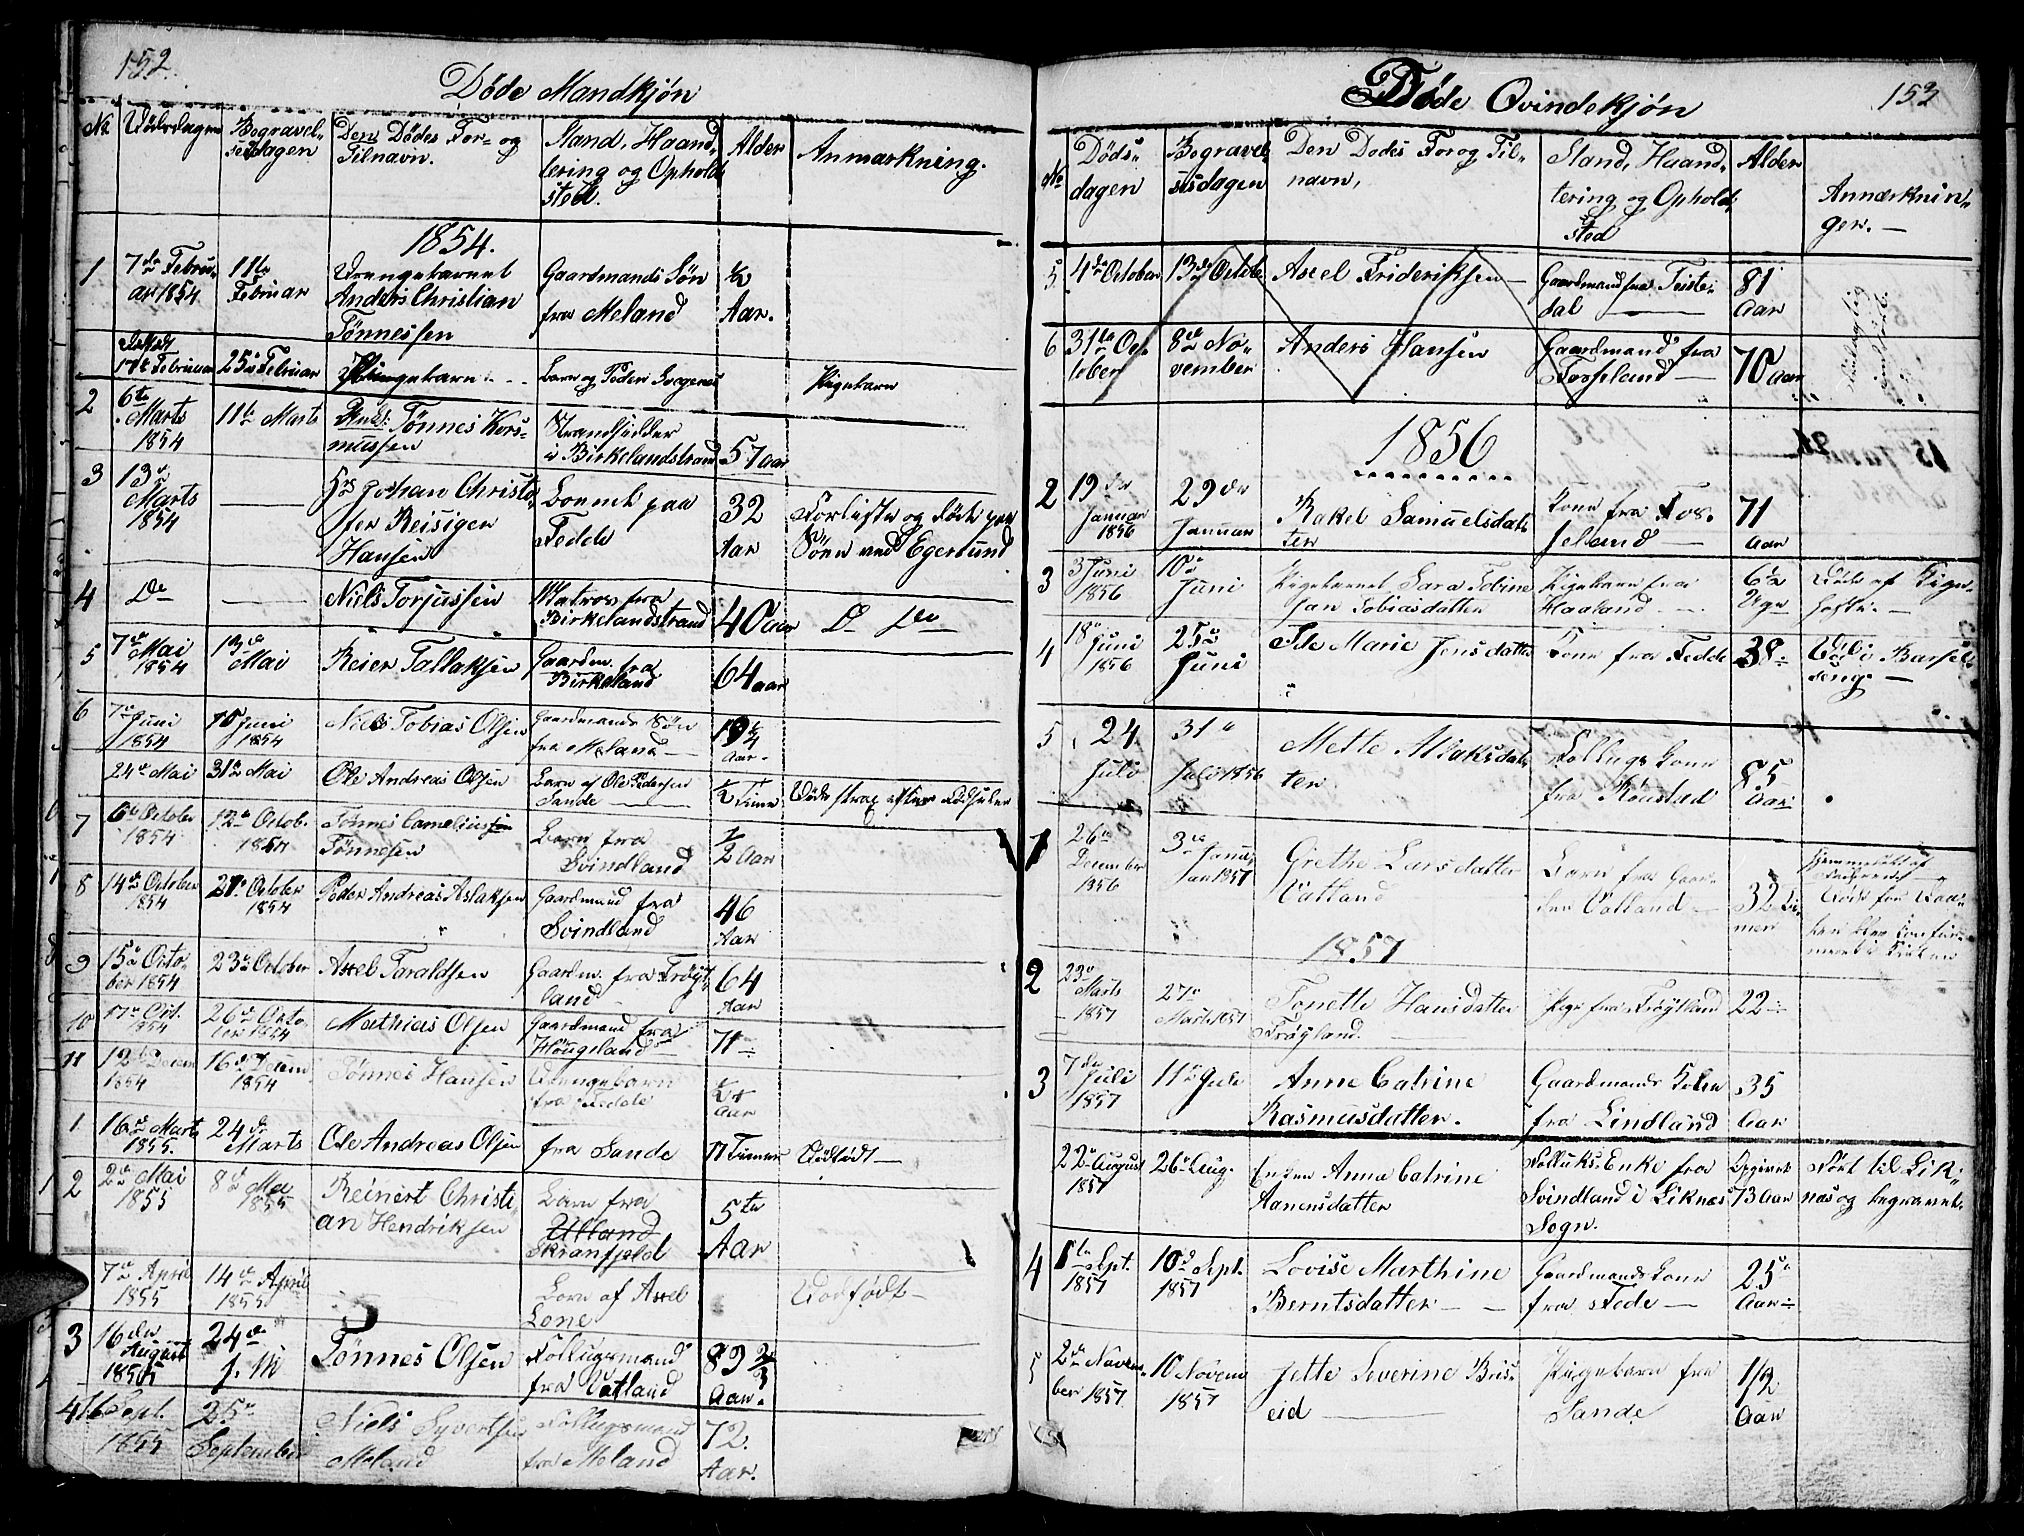 152.
Døde Mandkjøn
No Dødsdagen Begravel- sesdagen Den Dødes For- og Tilnavn. Stand, Haand- tering og Ophold- sted. Alder Anmærkning.
1854.
1 7de Febru- ar 1854 11te Februar Drengebarnet Anders Christian Tønnessen Gaardmands Søn fra Meland ½ Aar.
17de Februar 25de Februar Barn og Peder Pigebarn
2 6te Marts 1854 11te Marts Tønnes Kors- mussen Strandsidder i Birkelandstrand 57 aar
3 13de Marts 1854 Johan Christo- fer Reisiger Hansen paa Fedde 32 Aar Forliste og døde paa Søen ved Egersund
4 Do Niels Torjussen Matros fra Birkelandstrand 40 aar Do Do
5 7de Mai 1854 13de Mai Reier Tallaksen Gaardm. fra Birkeland 64 aar
6 7de Juni 1854 15 Juni 1854 Niels Tobias Olsen Gaardmands Søn fra Meland Aar
24de Mai 31te Mai Ole Andreas Olsen Barn af Ole Pedersen Sande ½ Time Døde strax efter Fødselen
7 6te October 1854 12te Octob. 1854 Tønnes Corneliussen Tønnesen Barn fra Svindland ½ Aar
8 14de October 1854 21de October 1854 Peder Andreas Aslaksen Gaardmand fra Svindland 46 Aar
9 15de Octo- ber 1854 23de October Axel Taraldsen Gaardm. fra Frøyt- land 64 Aar
10 17de Oct. 1854 26de Octo- ber 1854 Mathias Olsen Gaardmand fra Høugeland 71
11 12te Decem 1854 16de Decem. 1854 Tønnes Hansen Drengebarn fra Fedde ¼ Aar
1 16de Marts 1855. 24de Marts Ole Andreas Olsen fra Sande 11 Timer Dødfødt
2 2de Mai 1855 8de Mai 1855 Reinert Christi- an Hendriksen Barn fra Utland Skranfjeld 5te Aar
7de April 1855 14de April 1855 Barn af Axel Lone Dødfødt
3 16de August 1855 24de Tønnes Olsen Follugsmand fra Vatland 83 Aar.
4 16 Sept. 1855 25de September Niels Syvertsen Meland Follugsmand fra Meland 72 Aar.
153
Døde Qvindekjøn
No Døds- dagen Begravel- sesdagen Den Dødes For og Til- navn. Stand, Haand- tering og Ophold- sted Alder Anmærknin- ger.
5 4de October 13de Octobe Axel Frideriksen Gaardmand fra Teiste- dal 81 Aar
6 31te Oc- tober 8de No- vember Anders Hansen Gaardmand fra Fosseland 70 Aar
1856
2 19de Januar 1856 29de Januar Rakel Samuelsdat- ter Kone fra Fos- seland 71 Aar
3 3 Juni 1856 10de Juni Pigebarnet Sara Tobine Jan Tobiasdatter Pigebarn fra Haaland 6te Uge Døde af Kig- hoste
4 18de Juni 1856 25de Juni Ide Marie Jensdatter Kone fra Fedde 38 Døde i Barsel- seng
5 24 Juli 31te Juli 1856 Mette Aslaksdat- ter Follugs Kone fra Røustad 85 Aar
1 26de December 1856 3de Januar 1857 Grethe Larsdatter Vatland Barn fra Gaar- den Vatland 32 Ti- mer
1857
2 23de Marts 1857 27de Marts 1857 Tonette Hansdatter Frøyland. Pige fra Frøytland 22
3 7de Juli 1857 11te Juli Anne Catrine Rasmusdatter. Gaardmands Kone fra Lindland 35 Aar
22de August 1857 26de Aug. Enken Anne Catrine Aanensdatter Folluks Enke fra Svindland i Liknes Sogn. Opgivet 73 Aar Ført til Lik- nes og begravet
4 1te Sept. 1857 10de Sept. 1857 Lovise Marthine Berntsdatter Gaardmands Kone fra Fede 25 Aar
5 2de Novem- ber 1857 10 Novem 1857 Jette Severine Bris- eid Pigebarn fra Sande 1/2 Aar